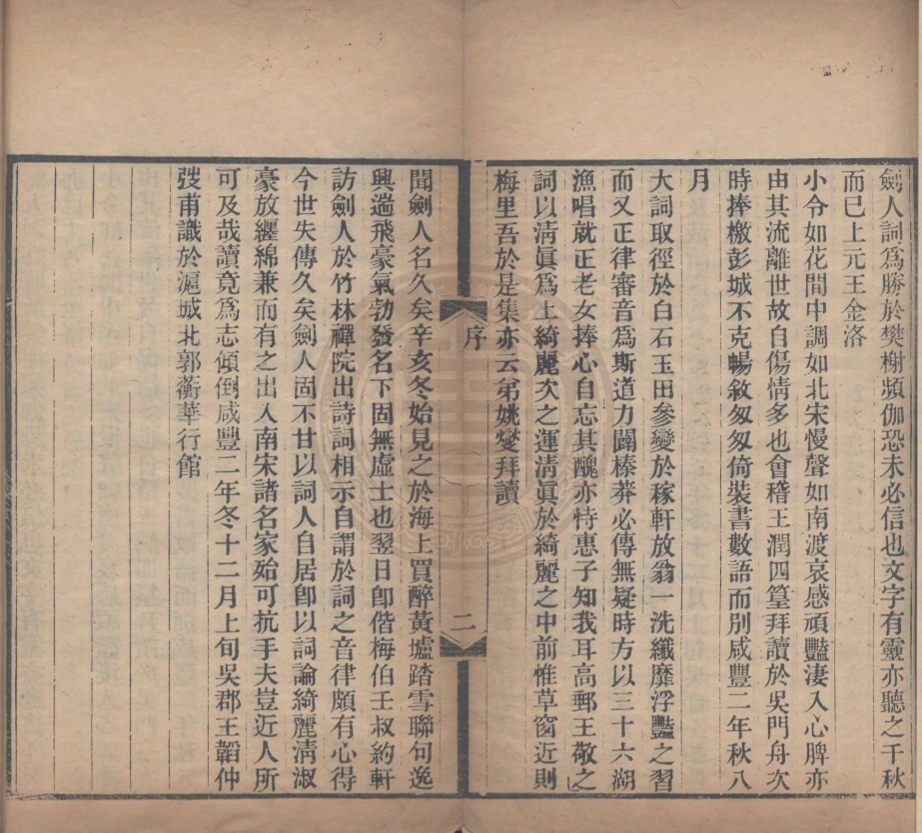 劍人詞爲勝於樊榭頻伽恐未必信也文字有靈亦聽之千秋
而已上元王金洛
小令如花間中調如北宋慢聲如南渡哀感頑豔淒入心脾亦
由其流離世故自傷情多也會稽王潤四篁拜讀於吳門舟次
時捧檄彭城不克暢敘匆匆倚裝書數語而別咸豐二年秋八
月
大詞取徑於白石玉田參變於稼軒放翁一洗纖靡浮豔之習
而又正律審音爲斯道力闢榛莽必傳無疑時方以三十六湖
漁唱就正老女捧心自忘其醜亦恃惠子知我耳高郵王敬之
詞以淸眞爲上綺麗次之運淸眞於綺麗之中前惟草窗近則
梅里吾於是集亦云弟姚燮拜讀
序
二
聞劍人名久矣辛亥冬始見之於海上買醉黃壚踏雪聯句逸
興遄飛豪氣勃發名下固無虛士也翌日卽偕梅伯壬叔約軒
訪劍人於竹林禪院出詩詞相示自謂於詞之音律頗有心得
今世失傳久矣劍人固不甘以詞人自居卽以詞論綺麗淸淑
豪放纒綿兼而有之出入南宋諸名家殆可抗手夫豈近人所
可及哉讀竟爲志傾倒咸豐二年冬十二月上旬吳郡王韜仲
弢甫識於滬城北郭蘅華行館